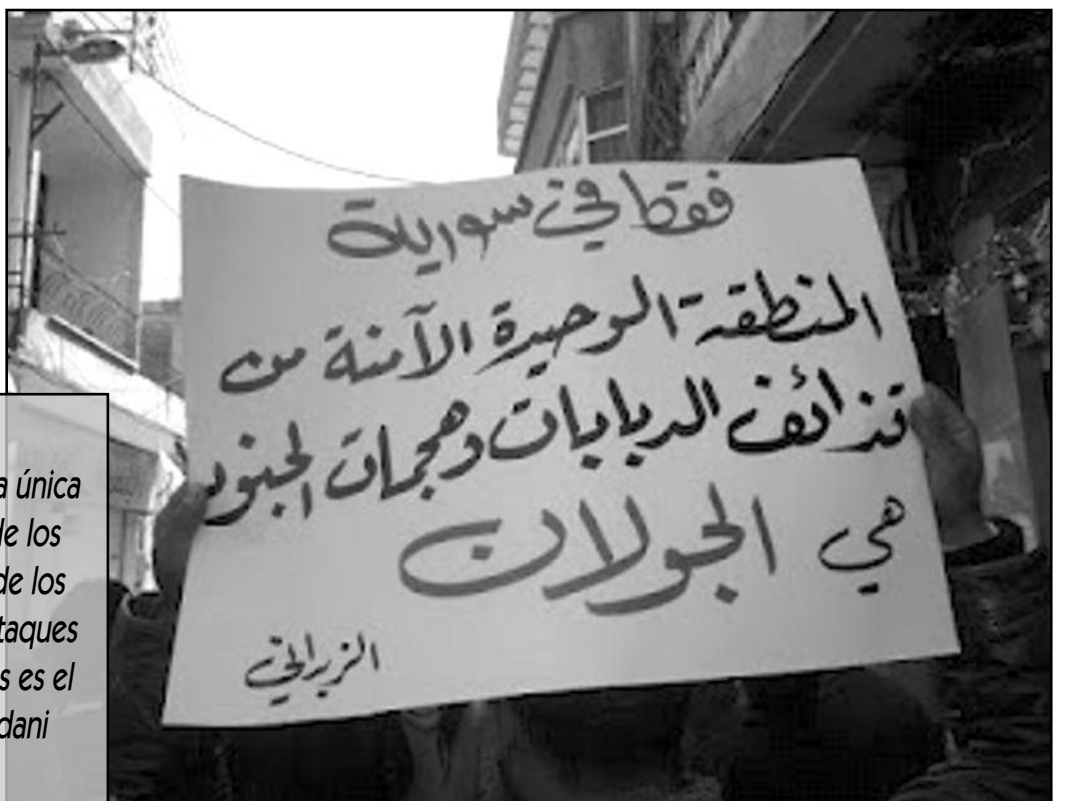 فقط في سورية
المنطقة الوحيدة الآمنة من
قذائف الدبابات وهجمات الجنود
هي الجولان
الزبداني
a única
de los
de los
taques
s es el
dani